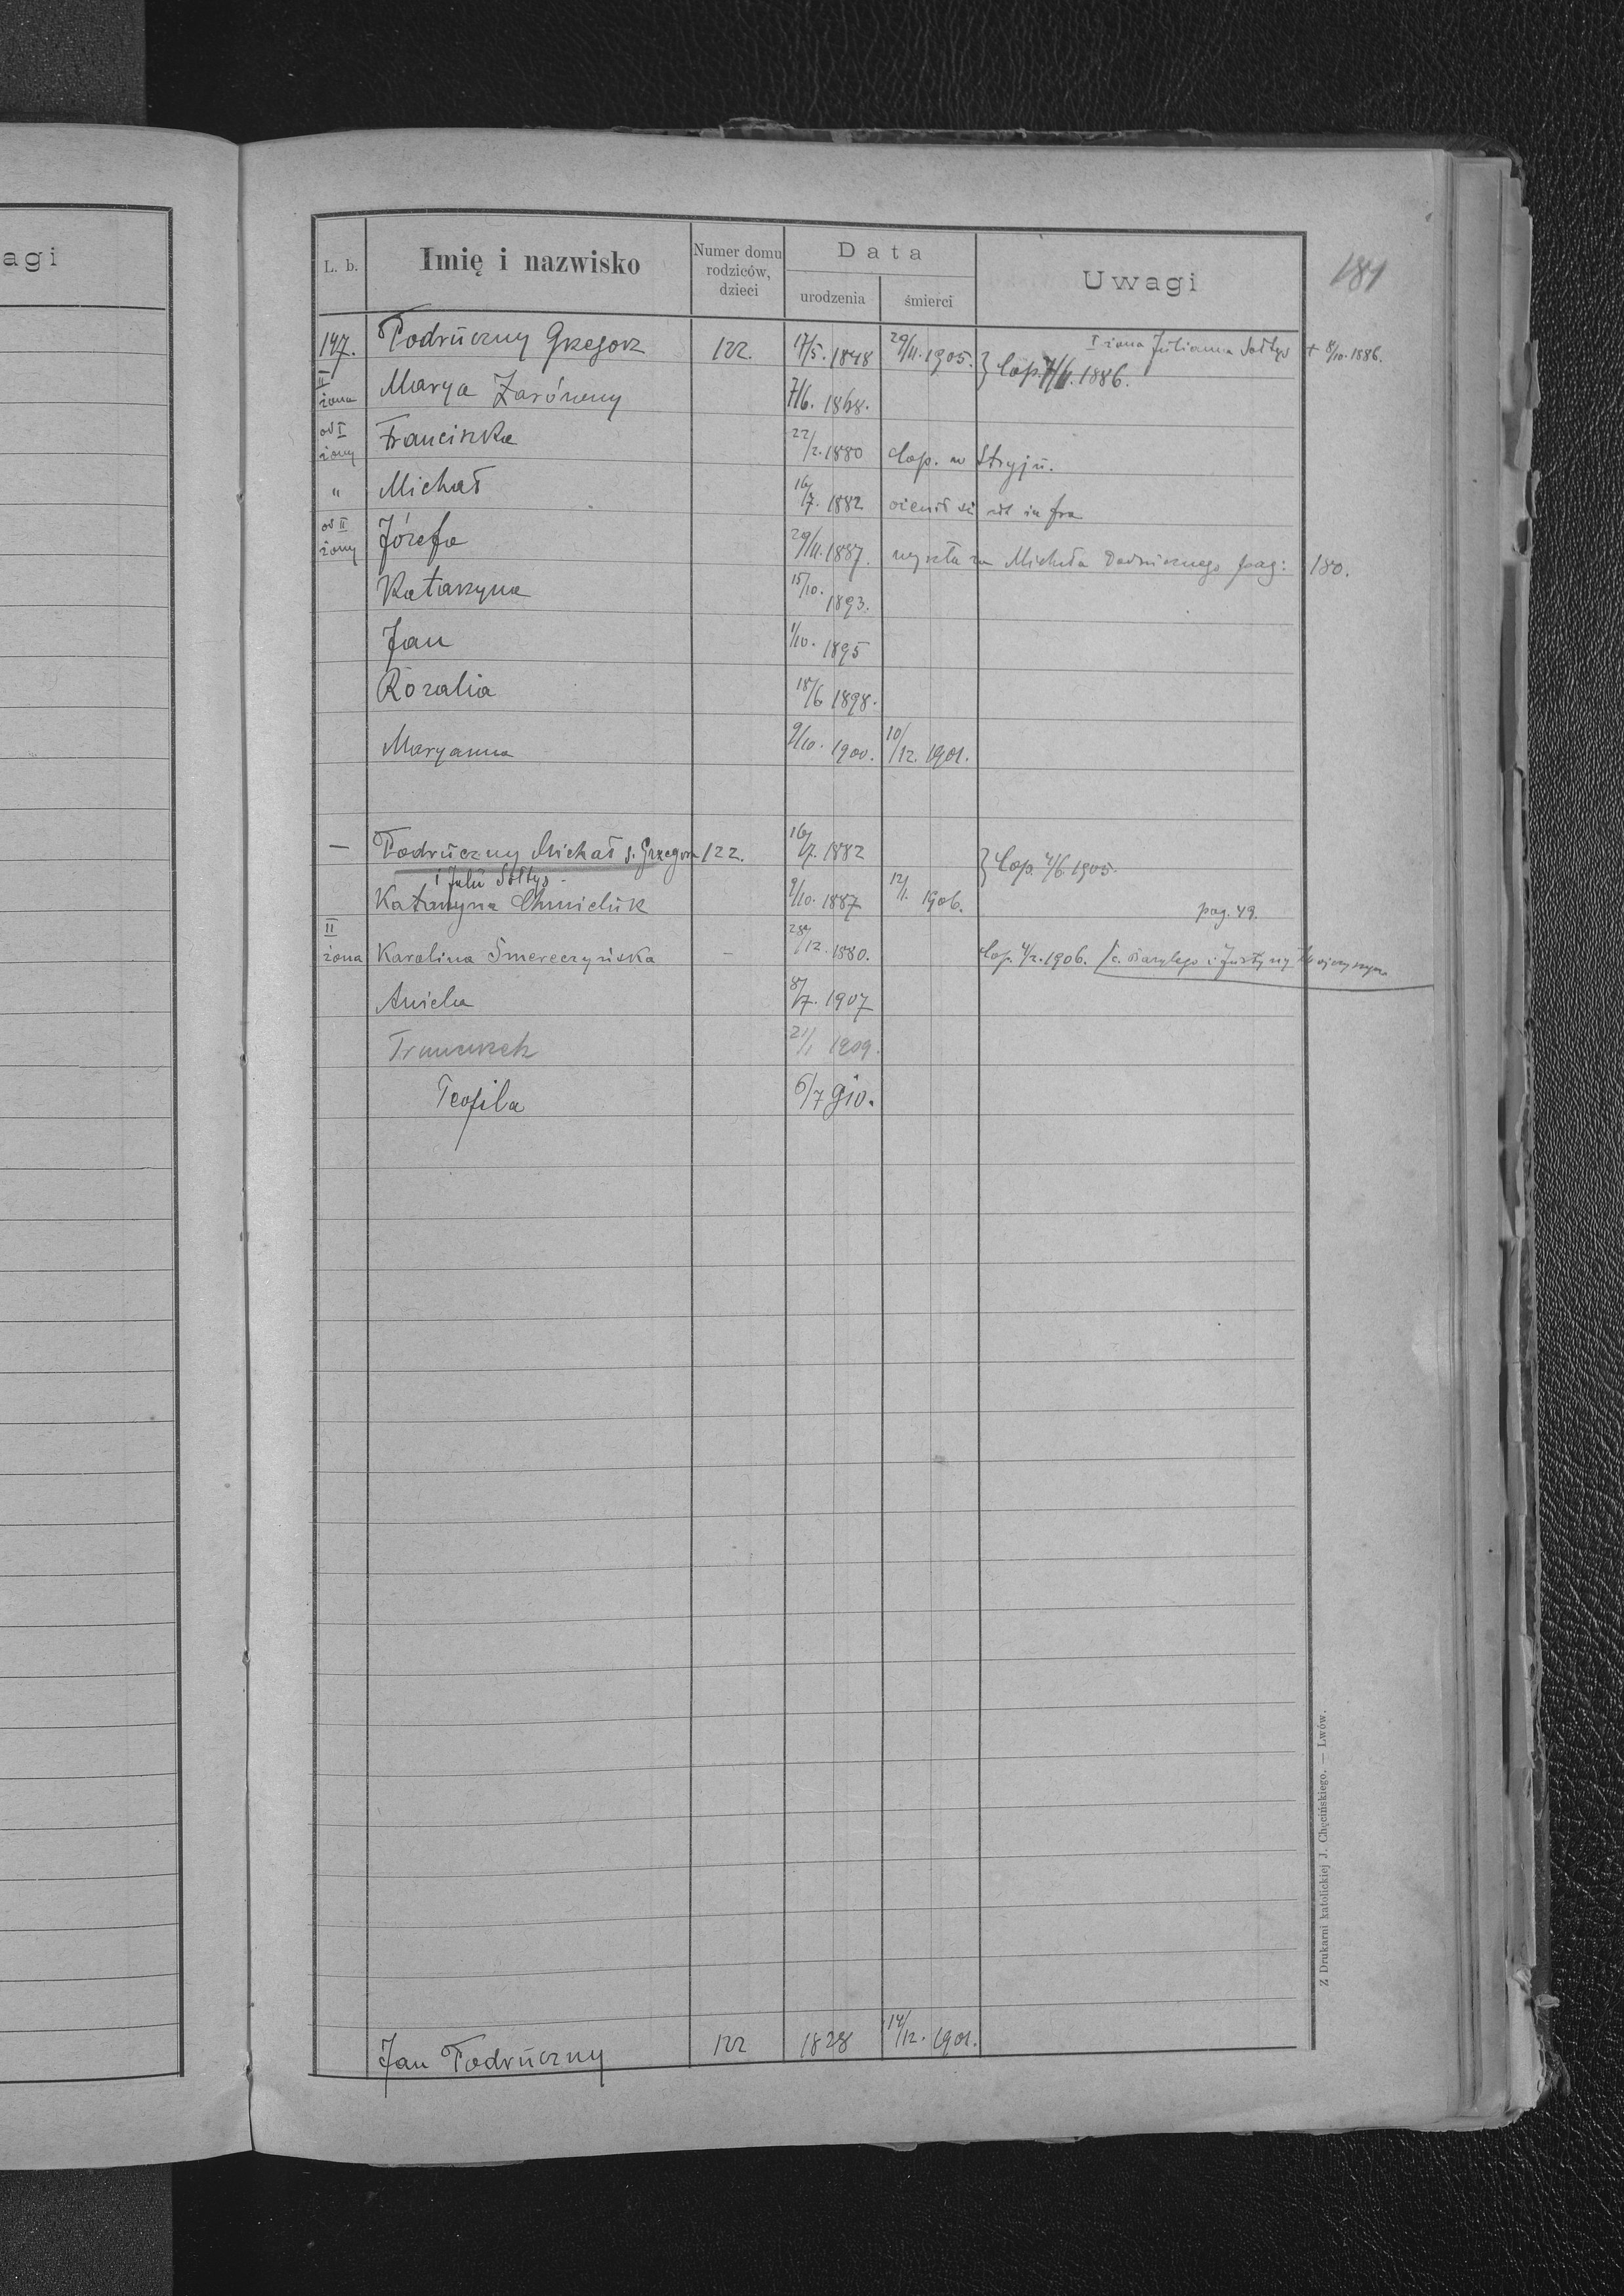 agi
181
L. b. Imię i nazwisko Numer domu rodziców, dzieci Data urodzenia śmierci Uwagi
147. Podrúczny Grzegorz 122. 17/5. 1848 29/11. 1905. I żona Julianna Sołtys + 8/10. 1886.
II żona Marya 7/6. 1868. } Cop. 1886.
od I żony Franciszka 22/2. 1880 Cop. w Stryjú.
" Michał 16/7. 1882 ożenił si vide infra
od II żony Józefa 29/11. 1887. wyszła za Michała Podrúcznego pag: 180.
Katarzyna 15/10. 1893.
Jan 1/10. 1895
Rozalia 18/6 1898.
Maryanna 9/10. 1900. 10/12. 1901.
— Podrúczny Michał s. Grzegorza 122. 16/7. 1882
i Julii Sołtys - } Cop. 4/6. 1905.
Katarzyna Chmielúk 9/10. 1887 12/1. 1906. pag. 49.
II żona Karolina Smereczyńska - 28/12. 1880. Cop. 4/2. 1906. /c. Bazylego i Justyny
Aniela 8/7. 1907
Franciszek 21/1 1909.
Teofila 6/7 910.
Jan Podrúczny 122 1828 14/12. 1901.
Z Drukarni katolickiej J. Chęcińskiego. — Lwów.